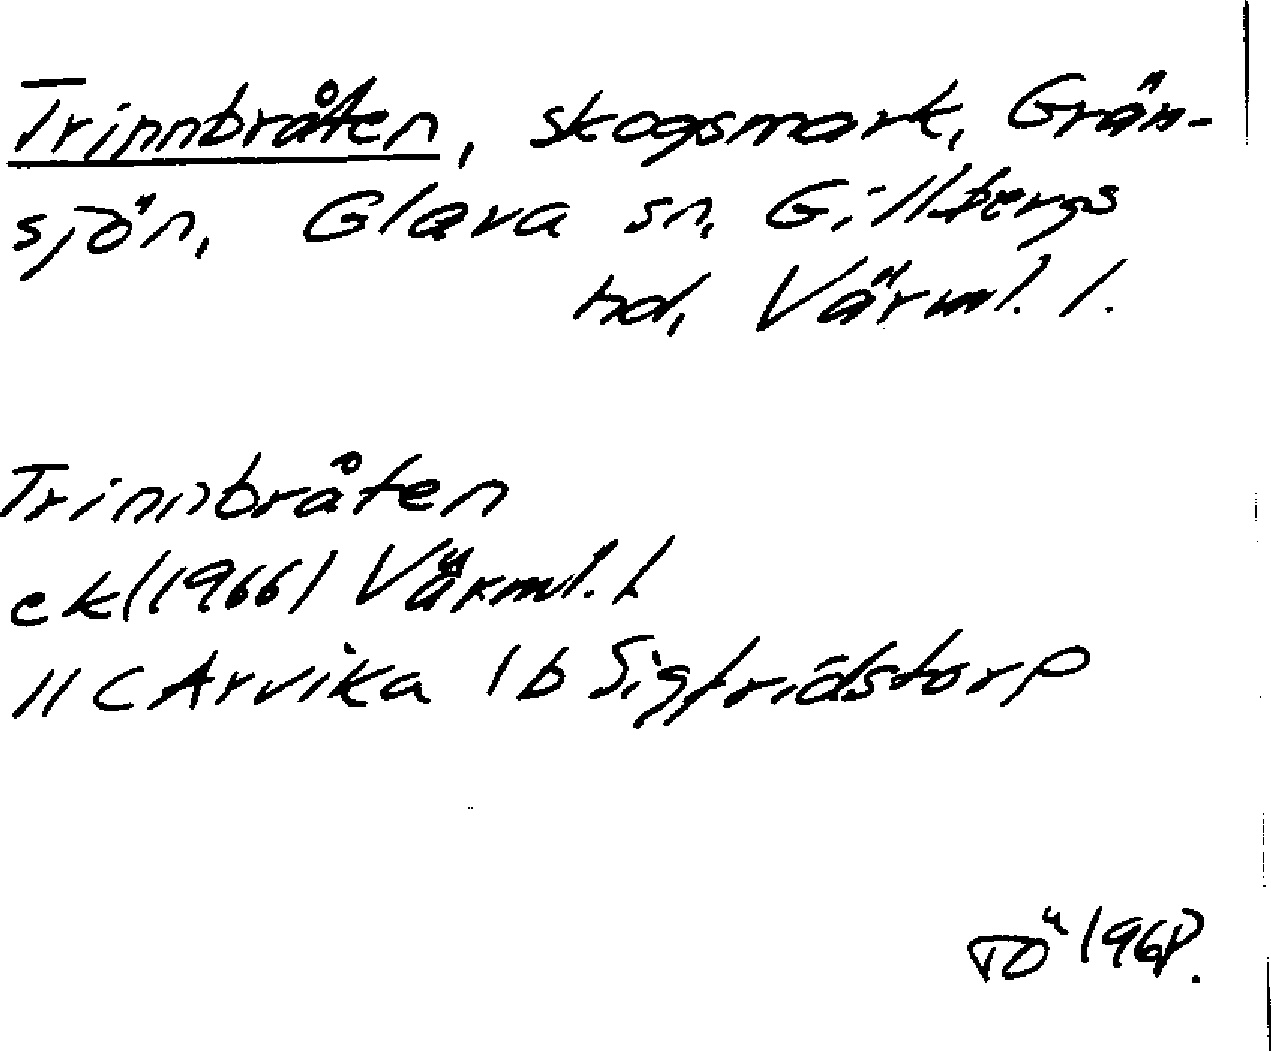 Trinnbråten, skogsmark, Grän-
sjön, Glava sn, Gillbergs
hd, Värml. l.
Trinnbråten
ek (1966) Värml. l.
11 C Arvika 1 b Sigfridstorp
1968.